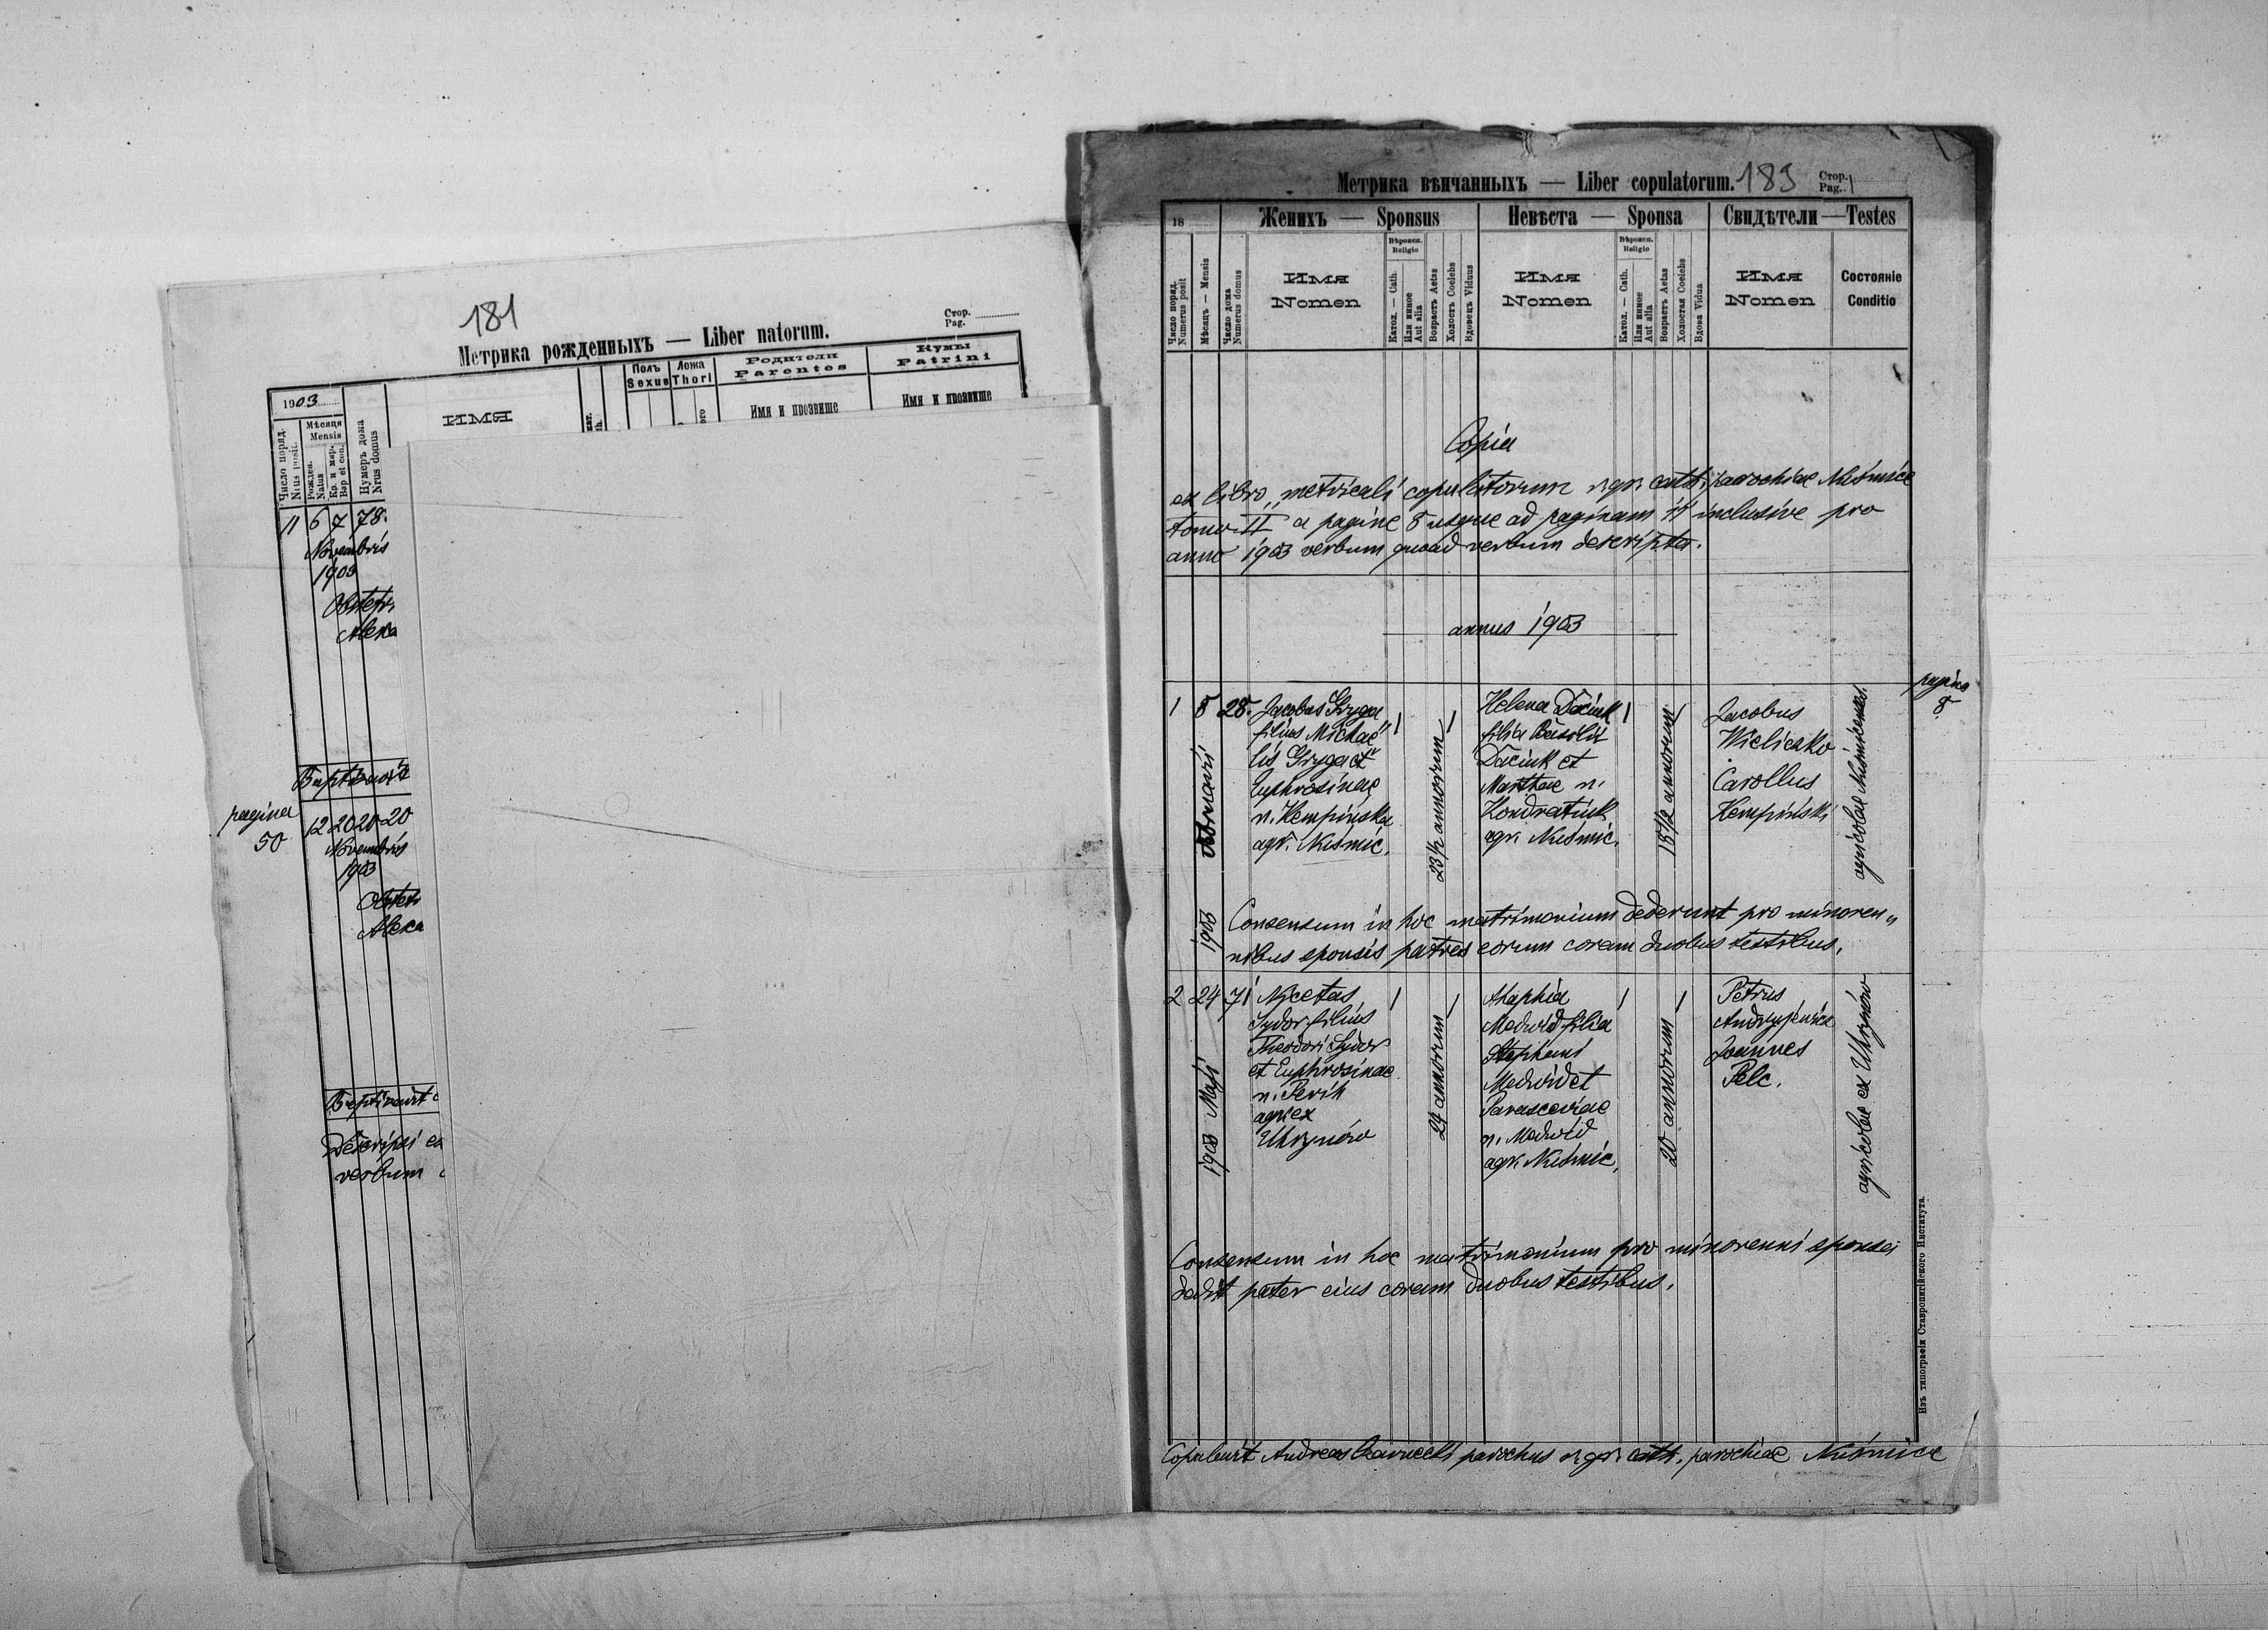 181
Метрика рожденныхъ — Liber natorum.
Стор.
Pag.
1903
Число поряд.
Nrus posit.
Мѣсяця
Mensis
Рожден.
Natus
Кр. и мир.
Bap et con.
Нумеръ дома
Nrus domus
ИМЯ
Полъ
Sexus
Ложа
Thori
Родители
Parentes
Имя и прозвище
Кумы
Patrini
Имя и прозвище
11 6 7 78.
Novembris
1903
Obstetri
Alexa
Baptisavit
pagina
50
12 20 20 20
Novembris
1903
Obstetr
Alexa
Baptisavit
Descripsi
verbum
Метрика вѣнчанныхъ — Liber copulatorum. 183
Стор.
Pag. 1
18
Женихъ — Sponsus
Невѣста — Sponsa
Свидѣтели — Testes
Число поряд.
Numerus posit
Мѣсяцъ — Mensis
Число дома
Numerus domus
Имя
Nomen
Вѣроисп.
Religio
Катол. — Cath.
Или инное
Aut alia
Возрастъ Aetas
Холостъ Coelebs
Вдовецъ Viduus
Имя
Nomen
Вѣроисп.
Religio
Катол. — Cath.
Или инное
Aut alia
Возрастъ Aetas
Холостая Coelebs
Вдова Vidua
Имя
Nomen
Состояніе
Conditio
Copia
ex libro metricali copulatorum r. gr. cath. parochiae Nuśmice
tomo II a pagine 8 usque ad paginam 11 inclusive pro
anno 1903 verbum quoad verbum descripta.
annus 1903
pagina
8
1 8 28.
Februarii
1903
Jacobus Gryga
filius Michae„
lis Gryga et
Euphrosinae
n. Kempińska
agr. Nuśmic.
1
23½ annorum
1
Helena Daciuk
filia Basilii
Daciuk et
Marthae n.
Kondratiuk
agr. Nuśmic.
1
18½ annorum
1
Jacobus
Wieliczko
Carollus
Kempiński
agricolae Nuśmicenses.
Consensum in hoc matrimonium dederunt pro minoren„
nibus sponsis patres eorum coram duobus testibus.
2 24 71
Maji
1903
Nicetas
Sydor filius
Theodori Sydor
et Euphrosinae
n. Perih
agr. ex
Uhrynów
1
24 annorum
1
Ahaphia
Medwid filia
Stephani
Medwid et
Parasceviae
n. Medwid
agr. Nuśmic.
1
20 annorum
1
Petrus
Joannes
Pelc.
agricolae ex Uhrynów
Consensum in hoc matrimonium pro minorenni sponsa
dedit pater eius coram duobus testibus.
Copulavit Andreas parochus r. gr. cath. parochiae Nuśmice
Изъ типографіи Ставропигійского Института.